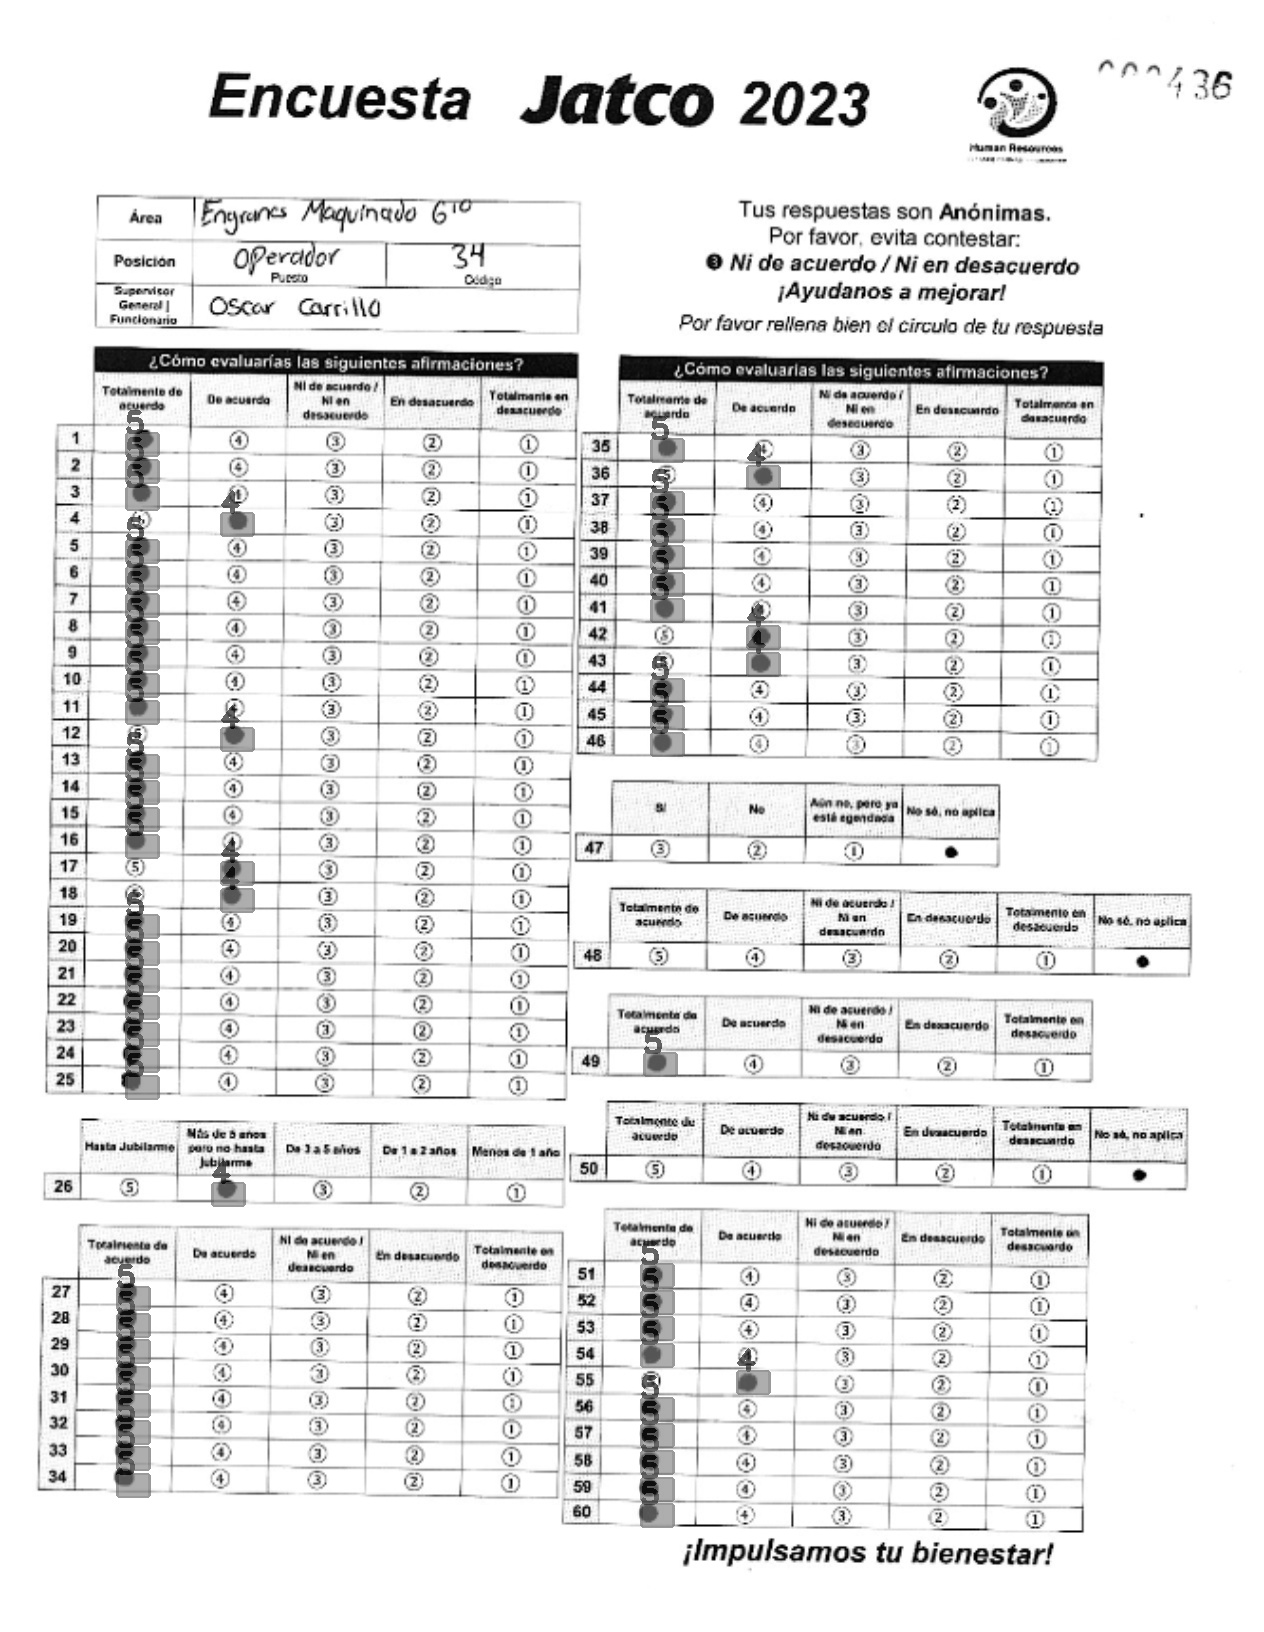 Encuesta Jatco 2023
436
Human Resources
Área Engranes Maquinado G10
Posición Operador 34
Puesto Código
Supervisor General | Funcionario Oscar Carrillo
Tus respuestas son Anónimas.
Por favor, evita contestar:
❸ Ni de acuerdo / Ni en desacuerdo
¡Ayudanos a mejorar!
Por favor rellena bien el circulo de tu respuesta
¿Cómo evaluarías las siguientes afirmaciones?
Totalmente de acuerdo De acuerdo Ni de acuerdo / Ni en desacuerdo En desacuerdo Totalmente en desacuerdo
1 5 ④ ③ ② ①
2 5 ④ ③ ② ①
3 5 ④ ③ ② ①
4 4 ③ ② ①
5 5 ④ ③ ② ①
6 5 ④ ③ ② ①
7 5 ④ ③ ② ①
8 5 ④ ③ ② ①
9 5 ④ ③ ② ①
10 5 ④ ③ ② ①
11 5 ④ ③ ② ①
12 ⑤ 4 ③ ② ①
13 5 ④ ③ ② ①
14 5 ④ ③ ② ①
15 5 ④ ③ ② ①
16 5 ④ ③ ② ①
17 ⑤ 4 ③ ② ①
18 ⑤ 4 ③ ② ①
19 5 ④ ③ ② ①
20 5 ④ ③ ② ①
21 5 ④ ③ ② ①
22 5 ④ ③ ② ①
23 5 ④ ③ ② ①
24 5 ④ ③ ② ①
25 5 ④ ③ ② ①
Hasta Jubilarme Más de 5 años pero no hasta Jubilarme De 3 a 5 años De 1 a 2 años Menos de 1 año
26 ⑤ 4 ③ ② ①
Totalmente de acuerdo De acuerdo Ni de acuerdo / Ni en desacuerdo En desacuerdo Totalmente en desacuerdo
27 5 ④ ③ ② ①
28 5 ④ ③ ② ①
29 5 ④ ③ ② ①
30 5 ④ ③ ② ①
31 5 ④ ③ ② ①
32 5 ④ ③ ② ①
33 5 ④ ③ ② ①
34 5 ④ ③ ② ①
¿Cómo evaluarías las siguientes afirmaciones?
Totalmente de acuerdo De acuerdo Ni de acuerdo / Ni en desacuerdo En desacuerdo Totalmente en desacuerdo
35 5 ④ ③ ② ①
36 ⑤ 4 ③ ② ①
37 5 ④ ③ ② ①
38 5 ④ ③ ② ①
39 5 ④ ③ ② ①
40 5 ④ ③ ② ①
41 5 ④ ③ ② ①
42 ⑤ 4 ③ ② ①
43 ⑤ 4 ③ ② ①
44 5 ④ ③ ② ①
45 5 ④ ③ ② ①
46 5 ④ ③ ② ①
Sí No Aún no, pero ya está agendada No sé, no aplica
47 ③ ② ① ●
Totalmente de acuerdo De acuerdo Ni de acuerdo / Ni en desacuerdo En desacuerdo Totalmente en desacuerdo No sé, no aplica
48 ⑤ ④ ③ ② ① ●
Totalmente de acuerdo De acuerdo Ni de acuerdo / Ni en desacuerdo En desacuerdo Totalmente en desacuerdo
49 5 ④ ③ ② ①
Totalmente de acuerdo De acuerdo Ni de acuerdo / Ni en desacuerdo En desacuerdo Totalmente en desacuerdo No sé, no aplica
50 ⑤ ④ ③ ② ① ●
Totalmente de acuerdo De acuerdo Ni de acuerdo / Ni en desacuerdo En desacuerdo Totalmente en desacuerdo
51 5 ④ ③ ② ①
52 5 ④ ③ ② ①
53 5 ④ ③ ② ①
54 5 ④ ③ ② ①
55 ⑤ 4 ③ ② ①
56 5 ④ ③ ② ①
57 5 ④ ③ ② ①
58 5 ④ ③ ② ①
59 5 ④ ③ ② ①
60 5 ④ ③ ② ①
¡Impulsamos tu bienestar!